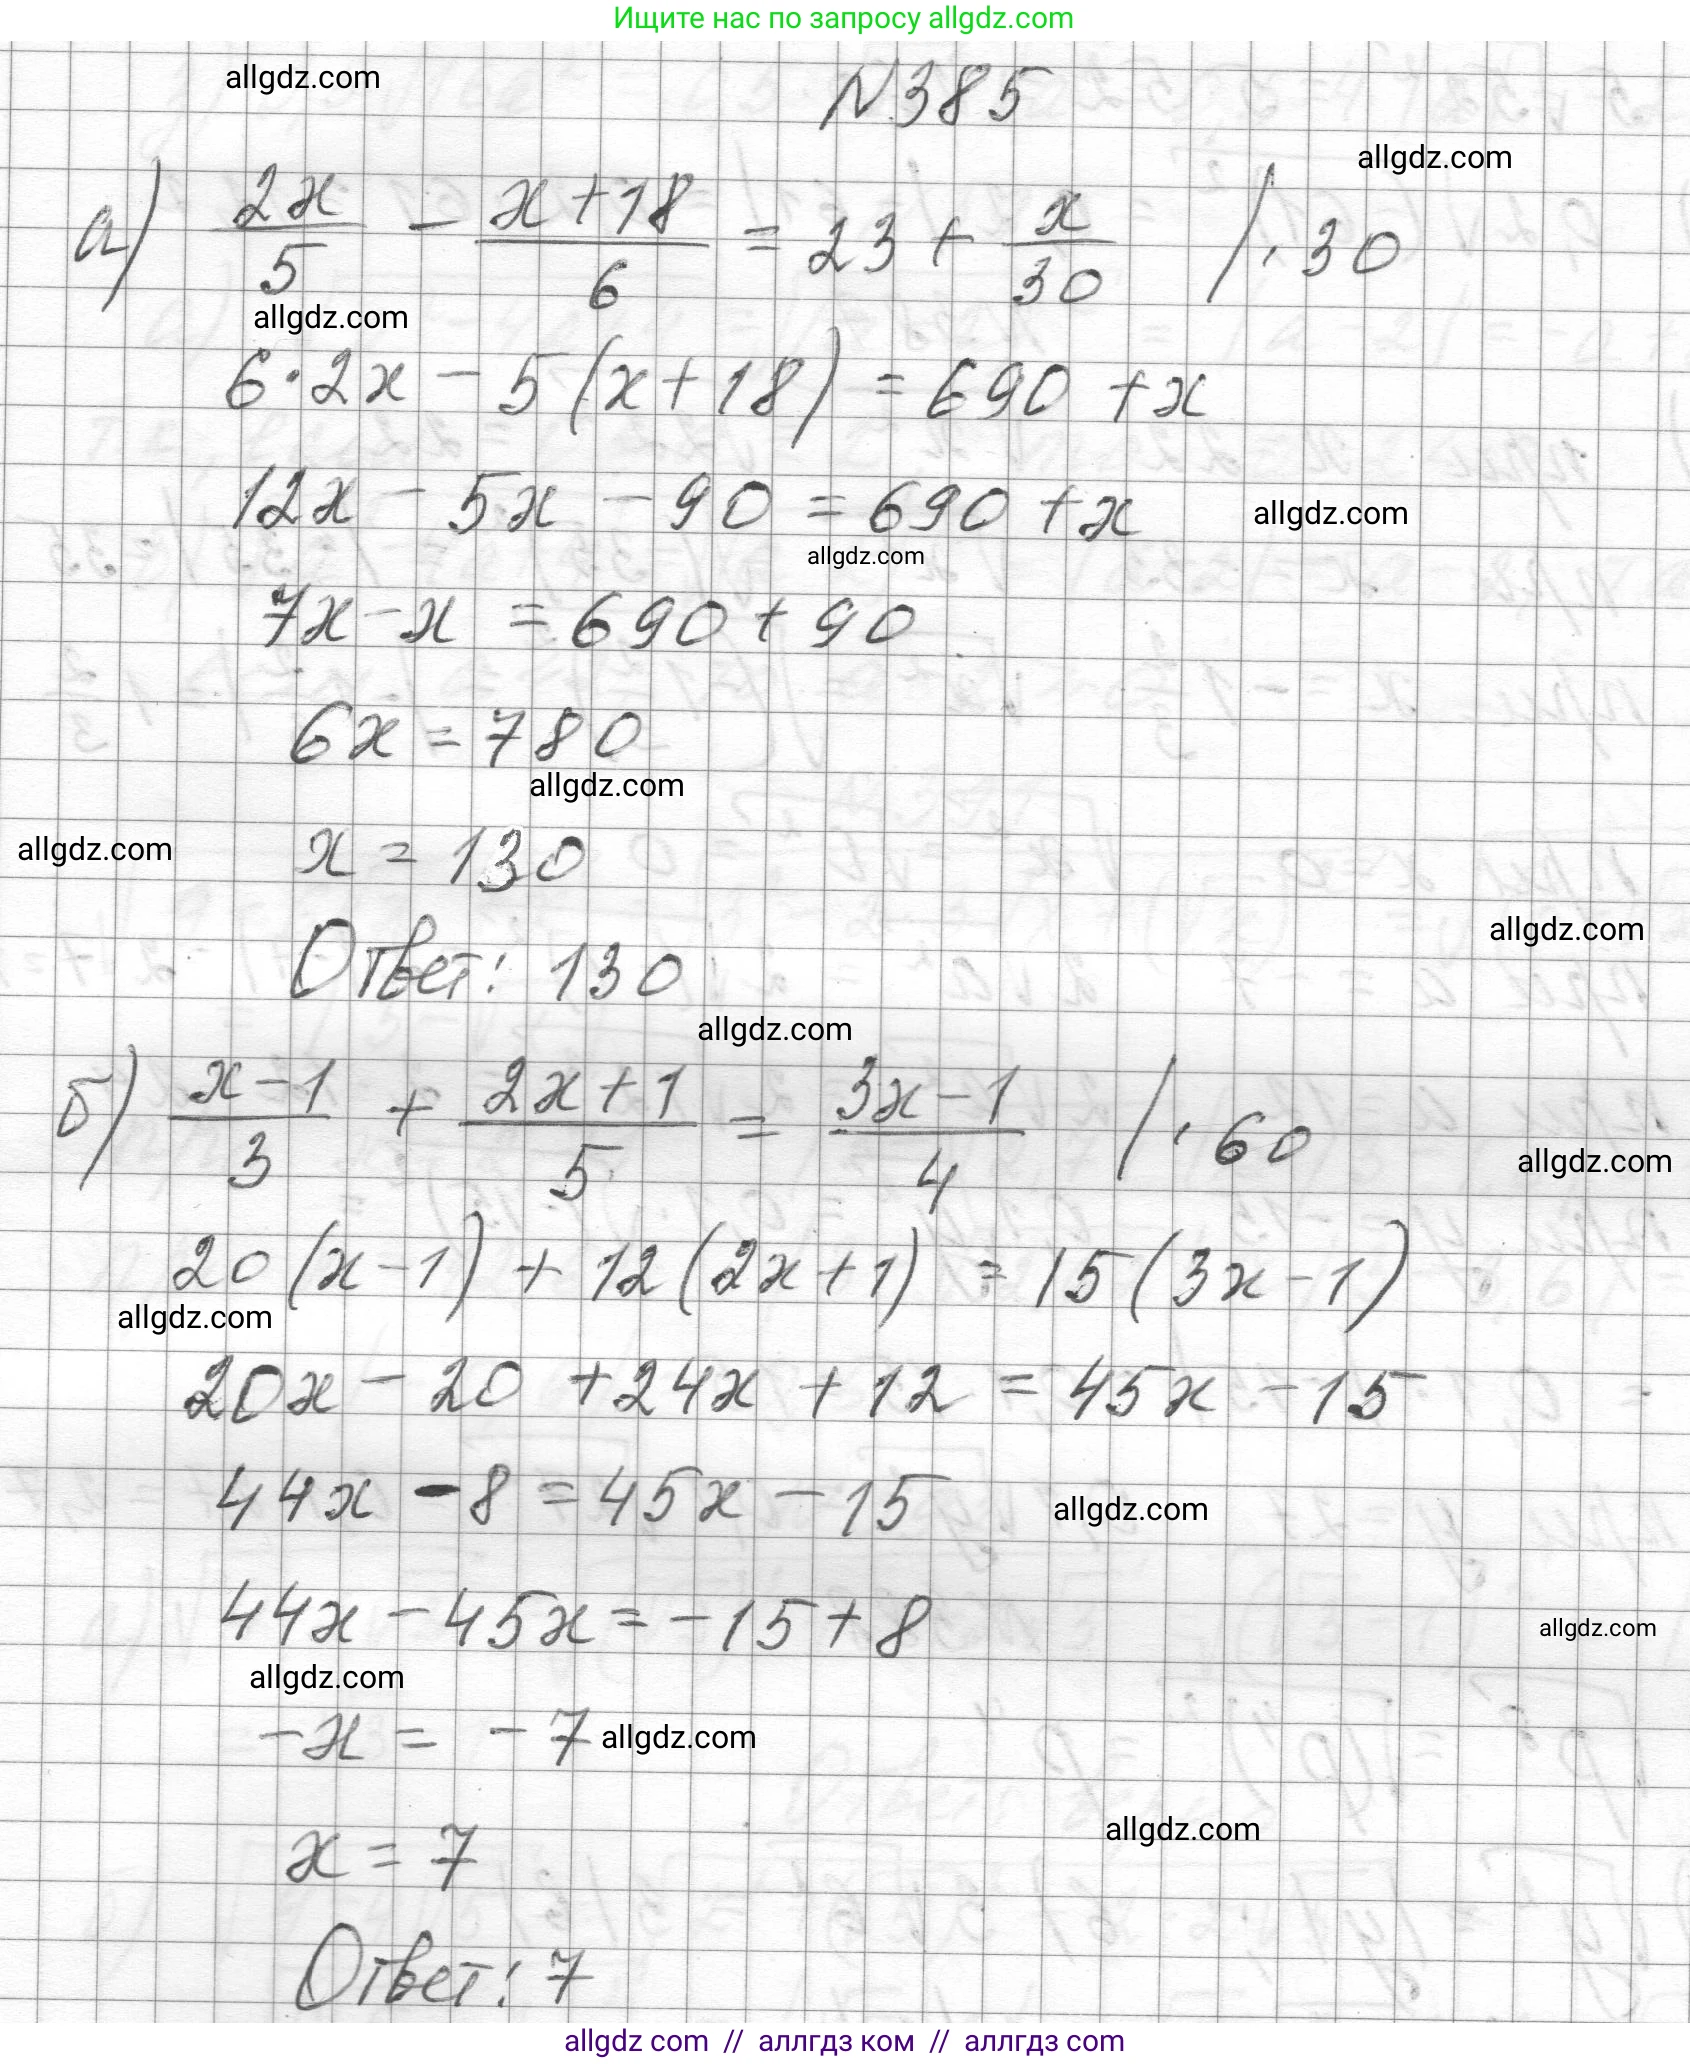 Ищите нас по запросу allgdz.com
allgdz.com
№385
allgdz.com
а) 2x/5 - (x+18)/6 = 23 + x/30 /·30
allgdz.com
6·2x - 5(x+18) = 690 + x
12x - 5x - 90 = 690 + x
allgdz.com
allgdz.com
7x - x = 690 + 90
6x = 780
allgdz.com
allgdz.com
x = 130
allgdz.com
Ответ: 130
allgdz.com
б) (x-1)/3 + (2x+1)/5 = (3x-1)/4 /·60
allgdz.com
20(x-1) + 12(2x+1) = 15(3x-1)
allgdz.com
20x - 20 + 24x + 12 = 45x - 15
44x - 8 = 45x - 15
allgdz.com
44x - 45x = -15 + 8
allgdz.com
allgdz.com
-x = -7
allgdz.com
allgdz.com
x = 7
Ответ: 7
allgdz com // аллгдз ком // аллгдз com